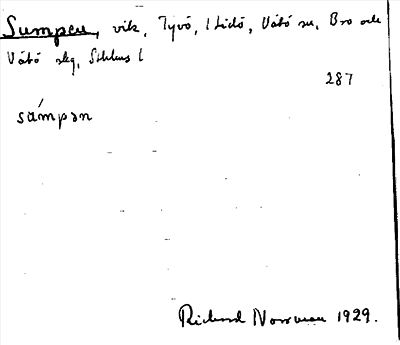 Sumpen, vik, Tyvö, Lidö, Vätö sn, Bro och
Vätö slg, Sthlms l
287
sámpən
Rickard Norrman 1929.